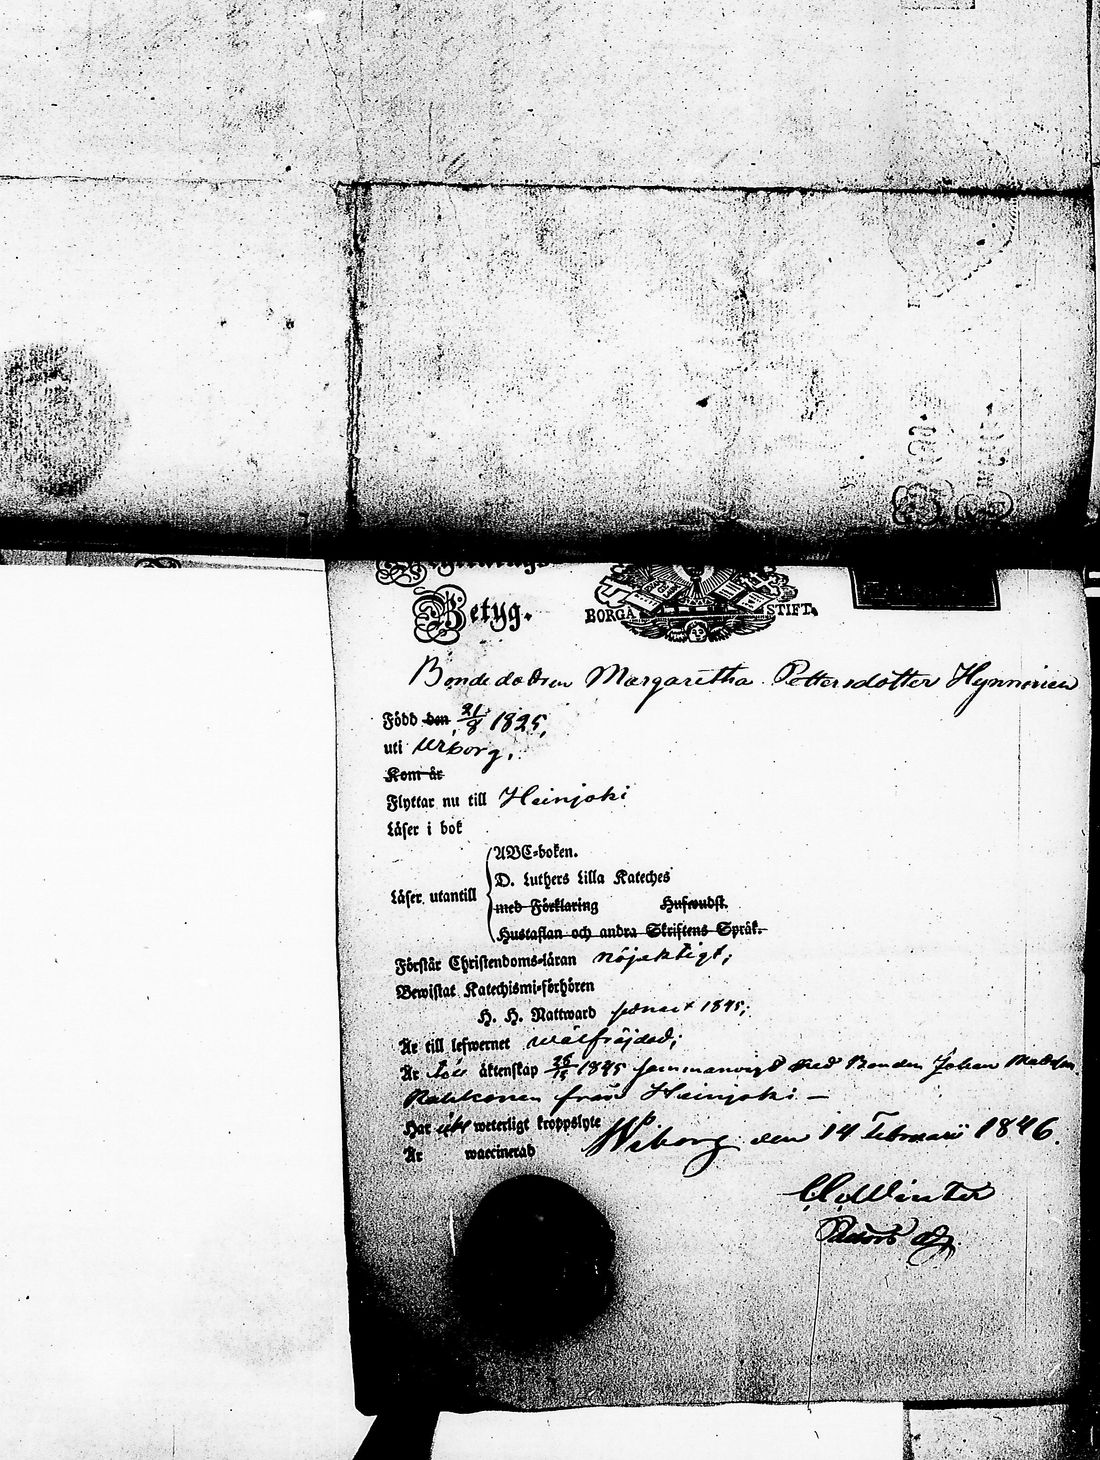 Betyg.
BORGÅ STIFT.
Bondedottren Margaretha Pettersdotter Hynninen
Född den 21/8 1825,
uti Wiborg,
Kom år
Flyttar nu till Heinjoki
Läser i bok
Läser utantill
ABC-boken.
D. Luthers Lilla Kateches
med Förklaring Hufwudst.
Hustaflan och andra Skriftens Språk.
Förstår Christendoms-läran nöjaktigt;
Bewistat Katechismi-förhören
H. H. Nattward senast 1845;
Är till lefwernet wälfräjdad;
Är äktenskap 1845 sammanwigd med Bonden Johan Mattsson
från Heinjoki —
Har icke weterligt kroppslyte
Är waccinerad
Wiborg den 14 Februarii 1846.
Winter
Pastor